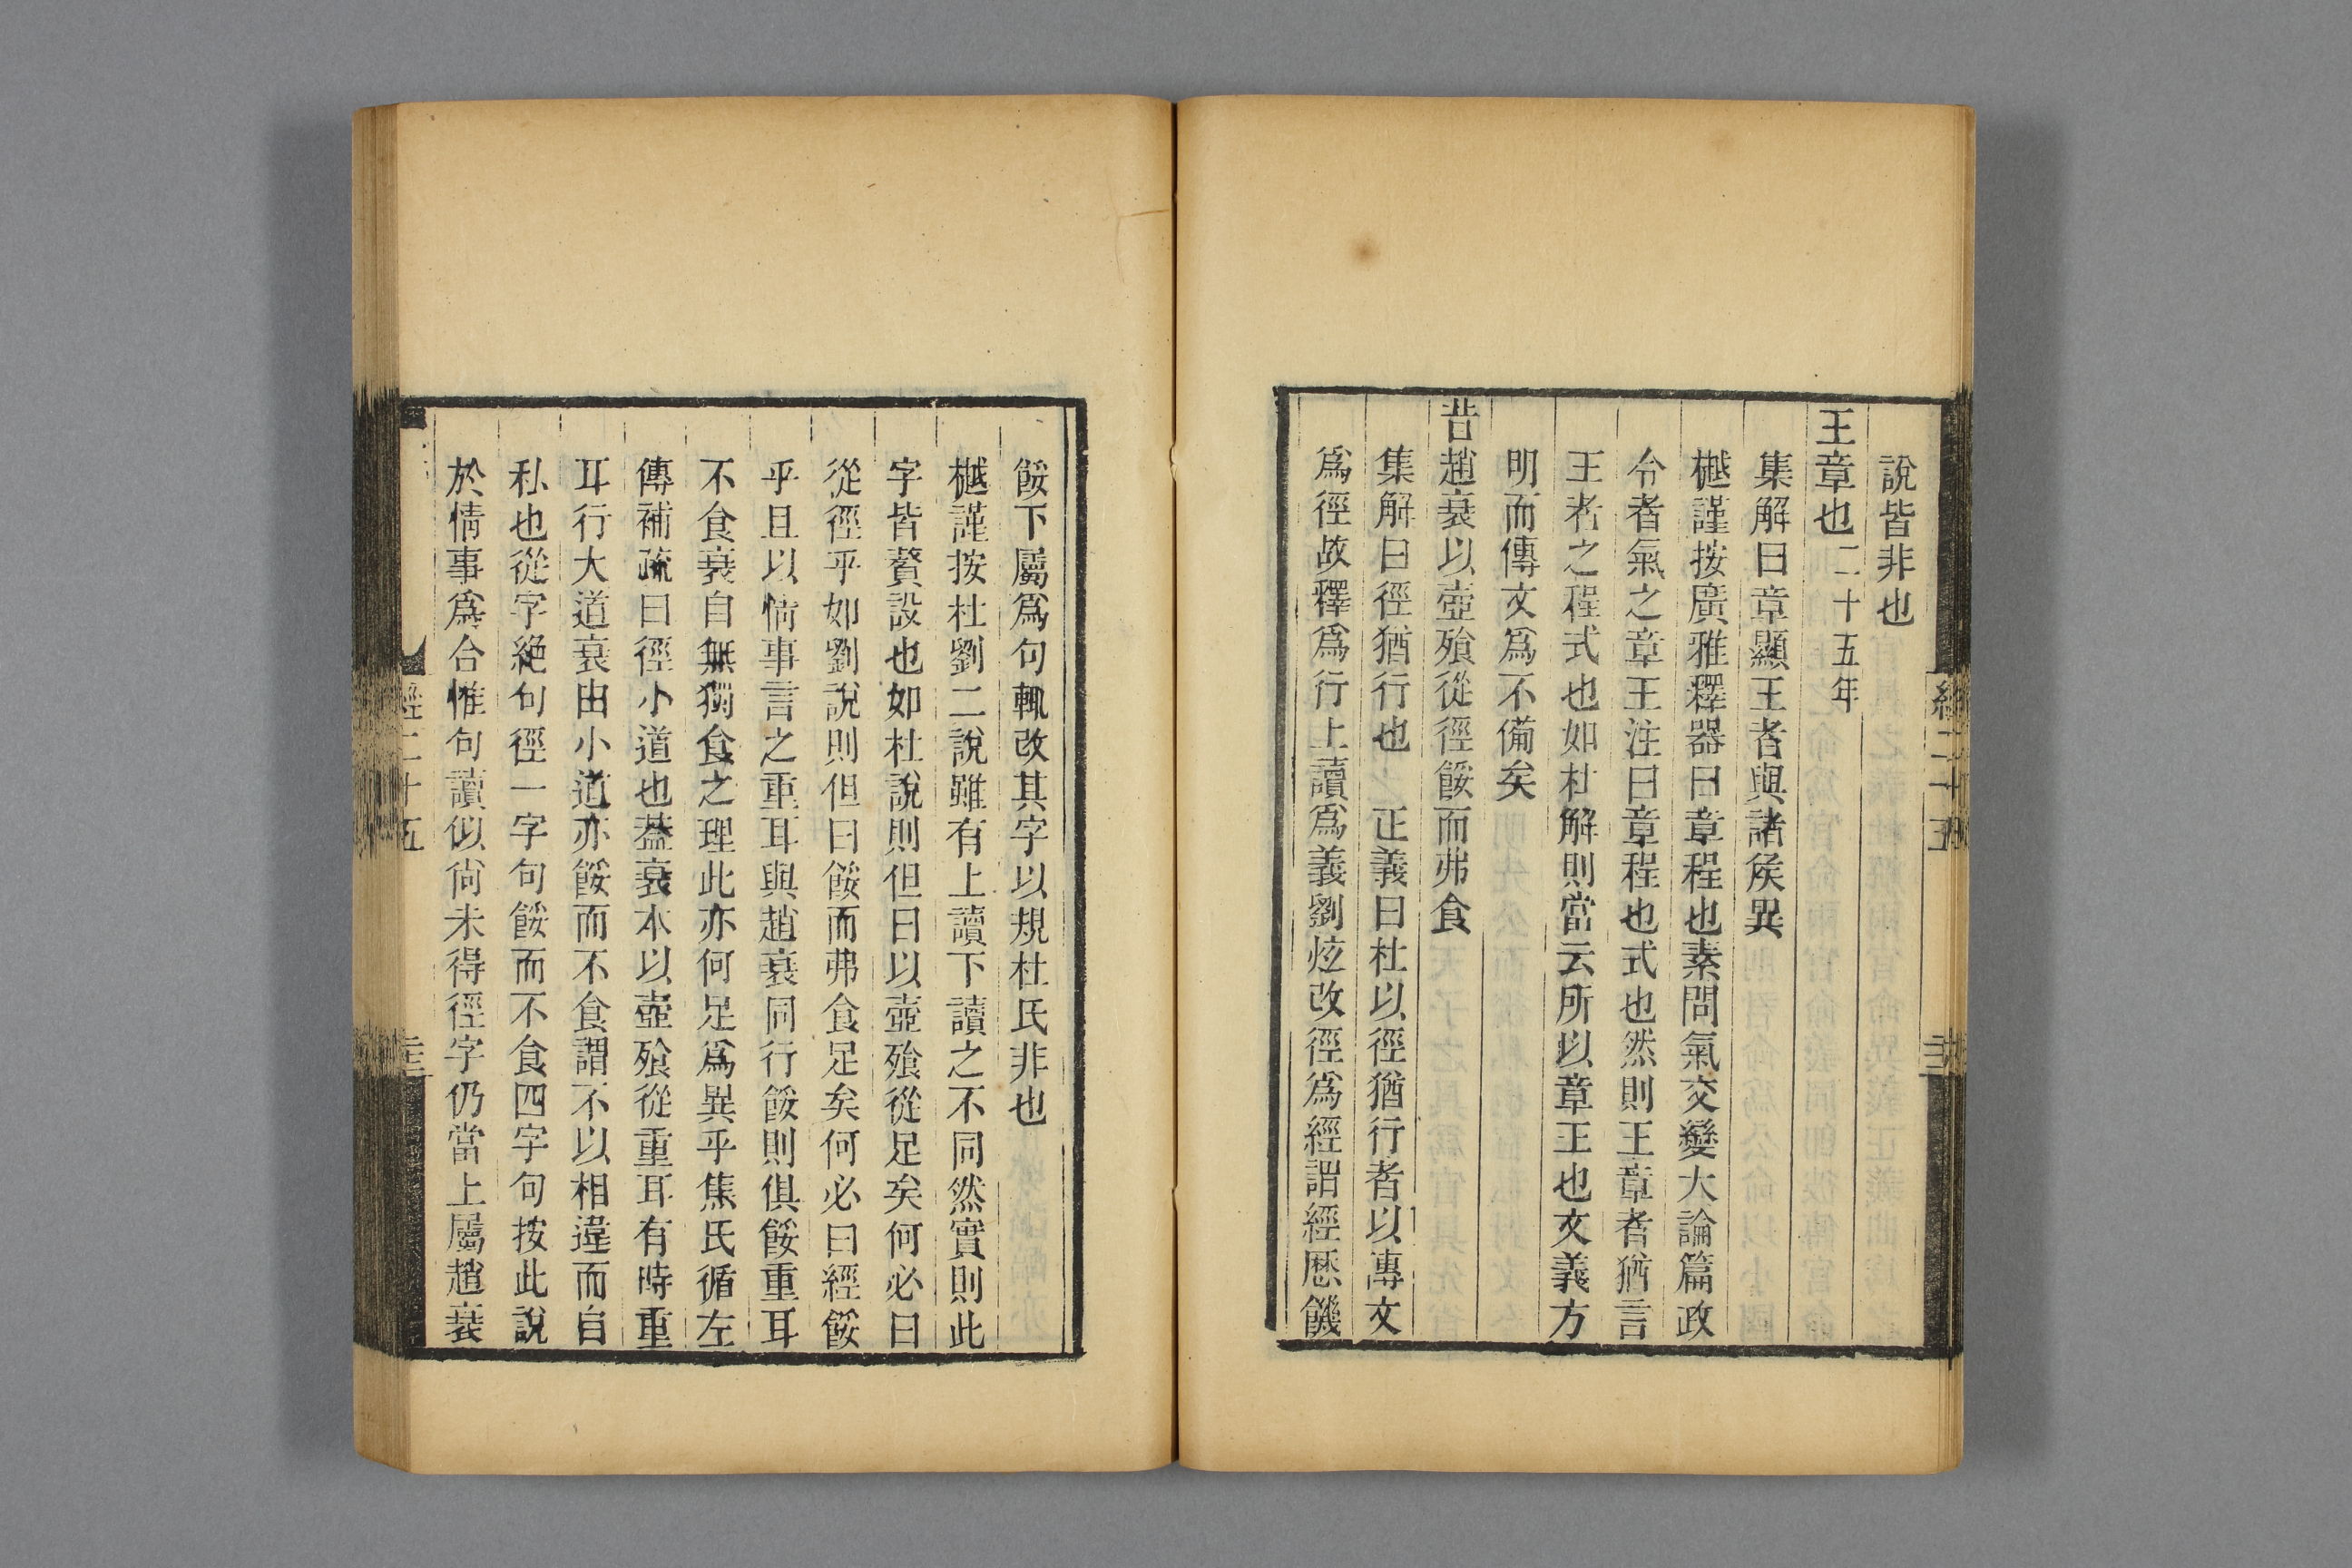 說皆非也
王章也二十五年
集解曰章顯王者與諸矦異
樾謹按廣雅釋器曰章程也素問氣交變大論篇政
令者氣之章王注曰章程也式也然則王章者猶言
王者之程式也如杜解則當云所以章王也文義方
明而傳文爲不備矣
昔趙衰以壺飱從徑餒而弗食
集解曰徑猶行也　正義曰杜以徑猶行者以傳文
爲徑故釋爲行上讀爲義劉炫改徑爲經謂經厯饑
餒下屬爲句輒改其字以規杜氏非也
樾謹按杜劉二說雖有上讀下讀之不同然實則此
字皆贅設也如杜說則但曰以壺飱從足矣何必曰
從徑乎如劉說則但曰餒而弗食足矣何必曰經餒
乎且以情事言之重耳與趙衰同行餒則俱餒重耳
不食衰自無獨食之理此亦何足爲異乎焦氏循左
傳補疏曰徑小道也葢衰本以壺飱從重耳有時重
耳行大道衰由小道亦餒而不食謂不以相違而自
私也從字絕句徑一字句餒而不食四字句按此說
於情事爲合惟句讀似尙未得徑字仍當上屬趙衰
經二十五